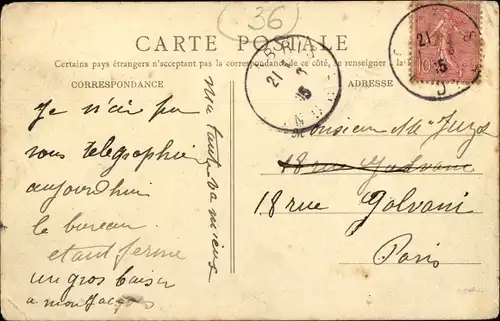 36
CARTE POSTALE
Certains pays étrangers n'acceptant pas la correspondance de ce côté, se renseigner à la
CORRESPONDANCE
ADRESSE
Je n'ai pu
vous telegraphier
aujourd'hui
le bureau
etant fermé
un gros baiser
a mon Jacques
Ma tante va mieux
Monsieur
18 rue Galvani
18 rue Galvani
Paris
21
15
21
15
10